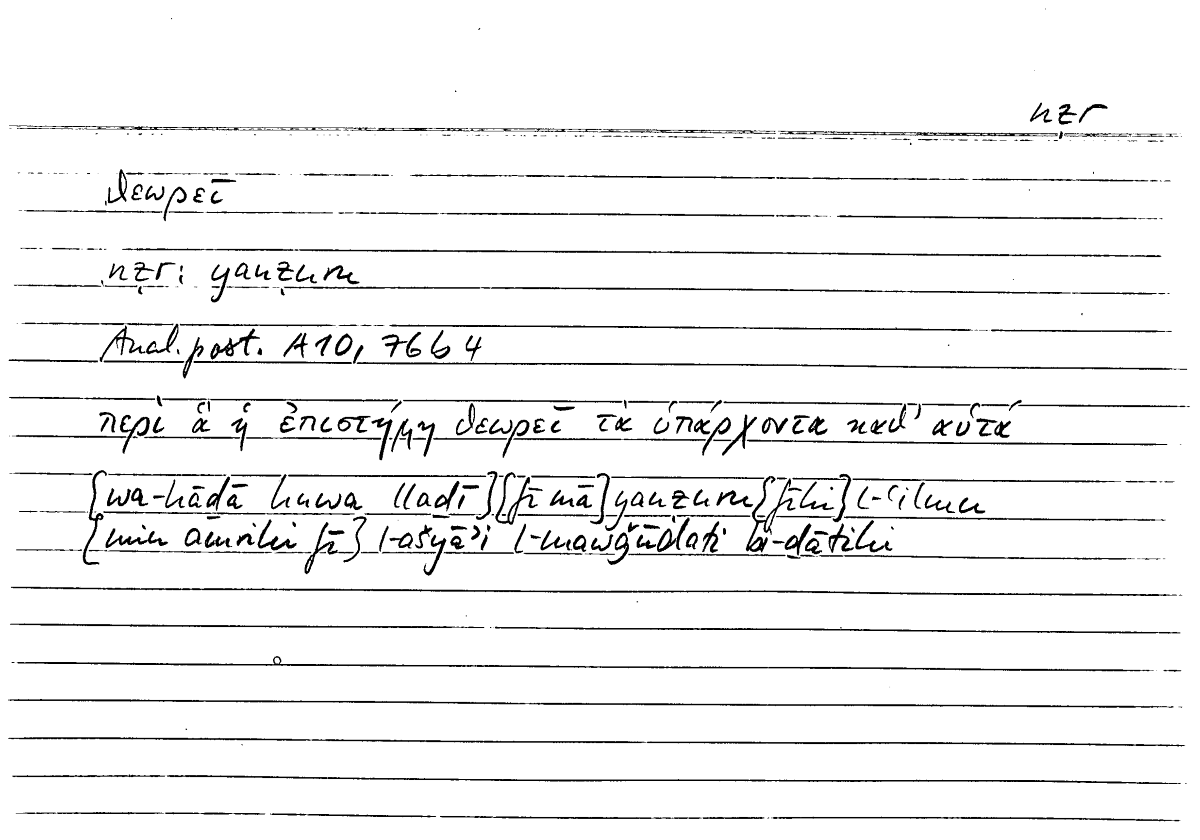 nẓr
θεωρεῖ
nẓr: yanẓuru
Anal. post. A 10, 76 b 4
περὶ ἃ ἡ ἐπιστήμη θεωρεῖ τὰ ὑπάρχοντα καθ' αὑτά
[wa-hāḏā huwa llaḏī] [fī mā] yanẓuru [fīhi] l-ʿilmu
[min amrihi fī] l-ašyāʾi l-mawǧūdati bi-ḏātihi